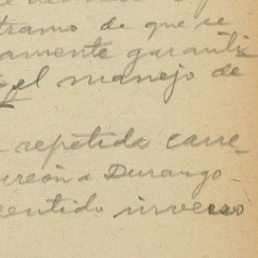 tramo de que se
amente garanti
el manejo de
repetida carre-
reón a Durango-
sentido inverso